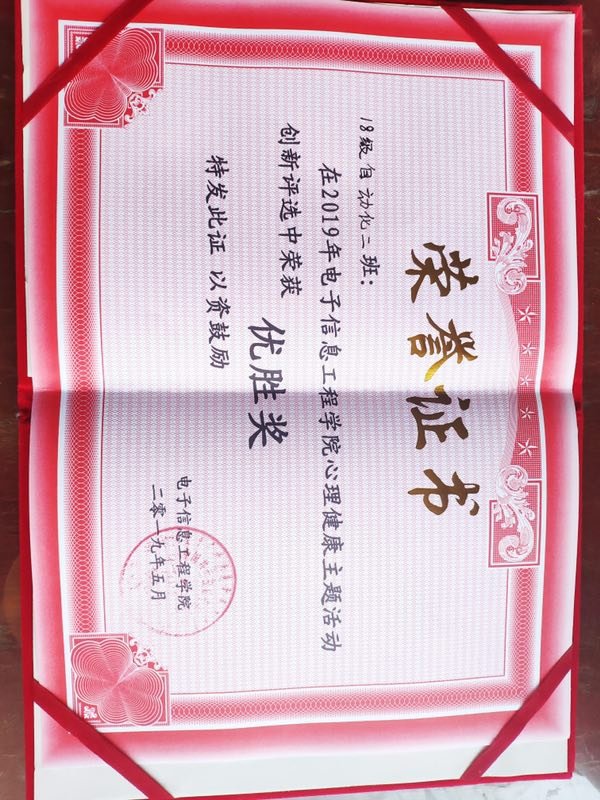 荣誉证书
18级自动化二班：
在2019年电子信息工程学院心理健康主题活动
创新评选中荣获 优胜奖
特发此证 以资鼓励
电子信息工程学院
二零一九年五月